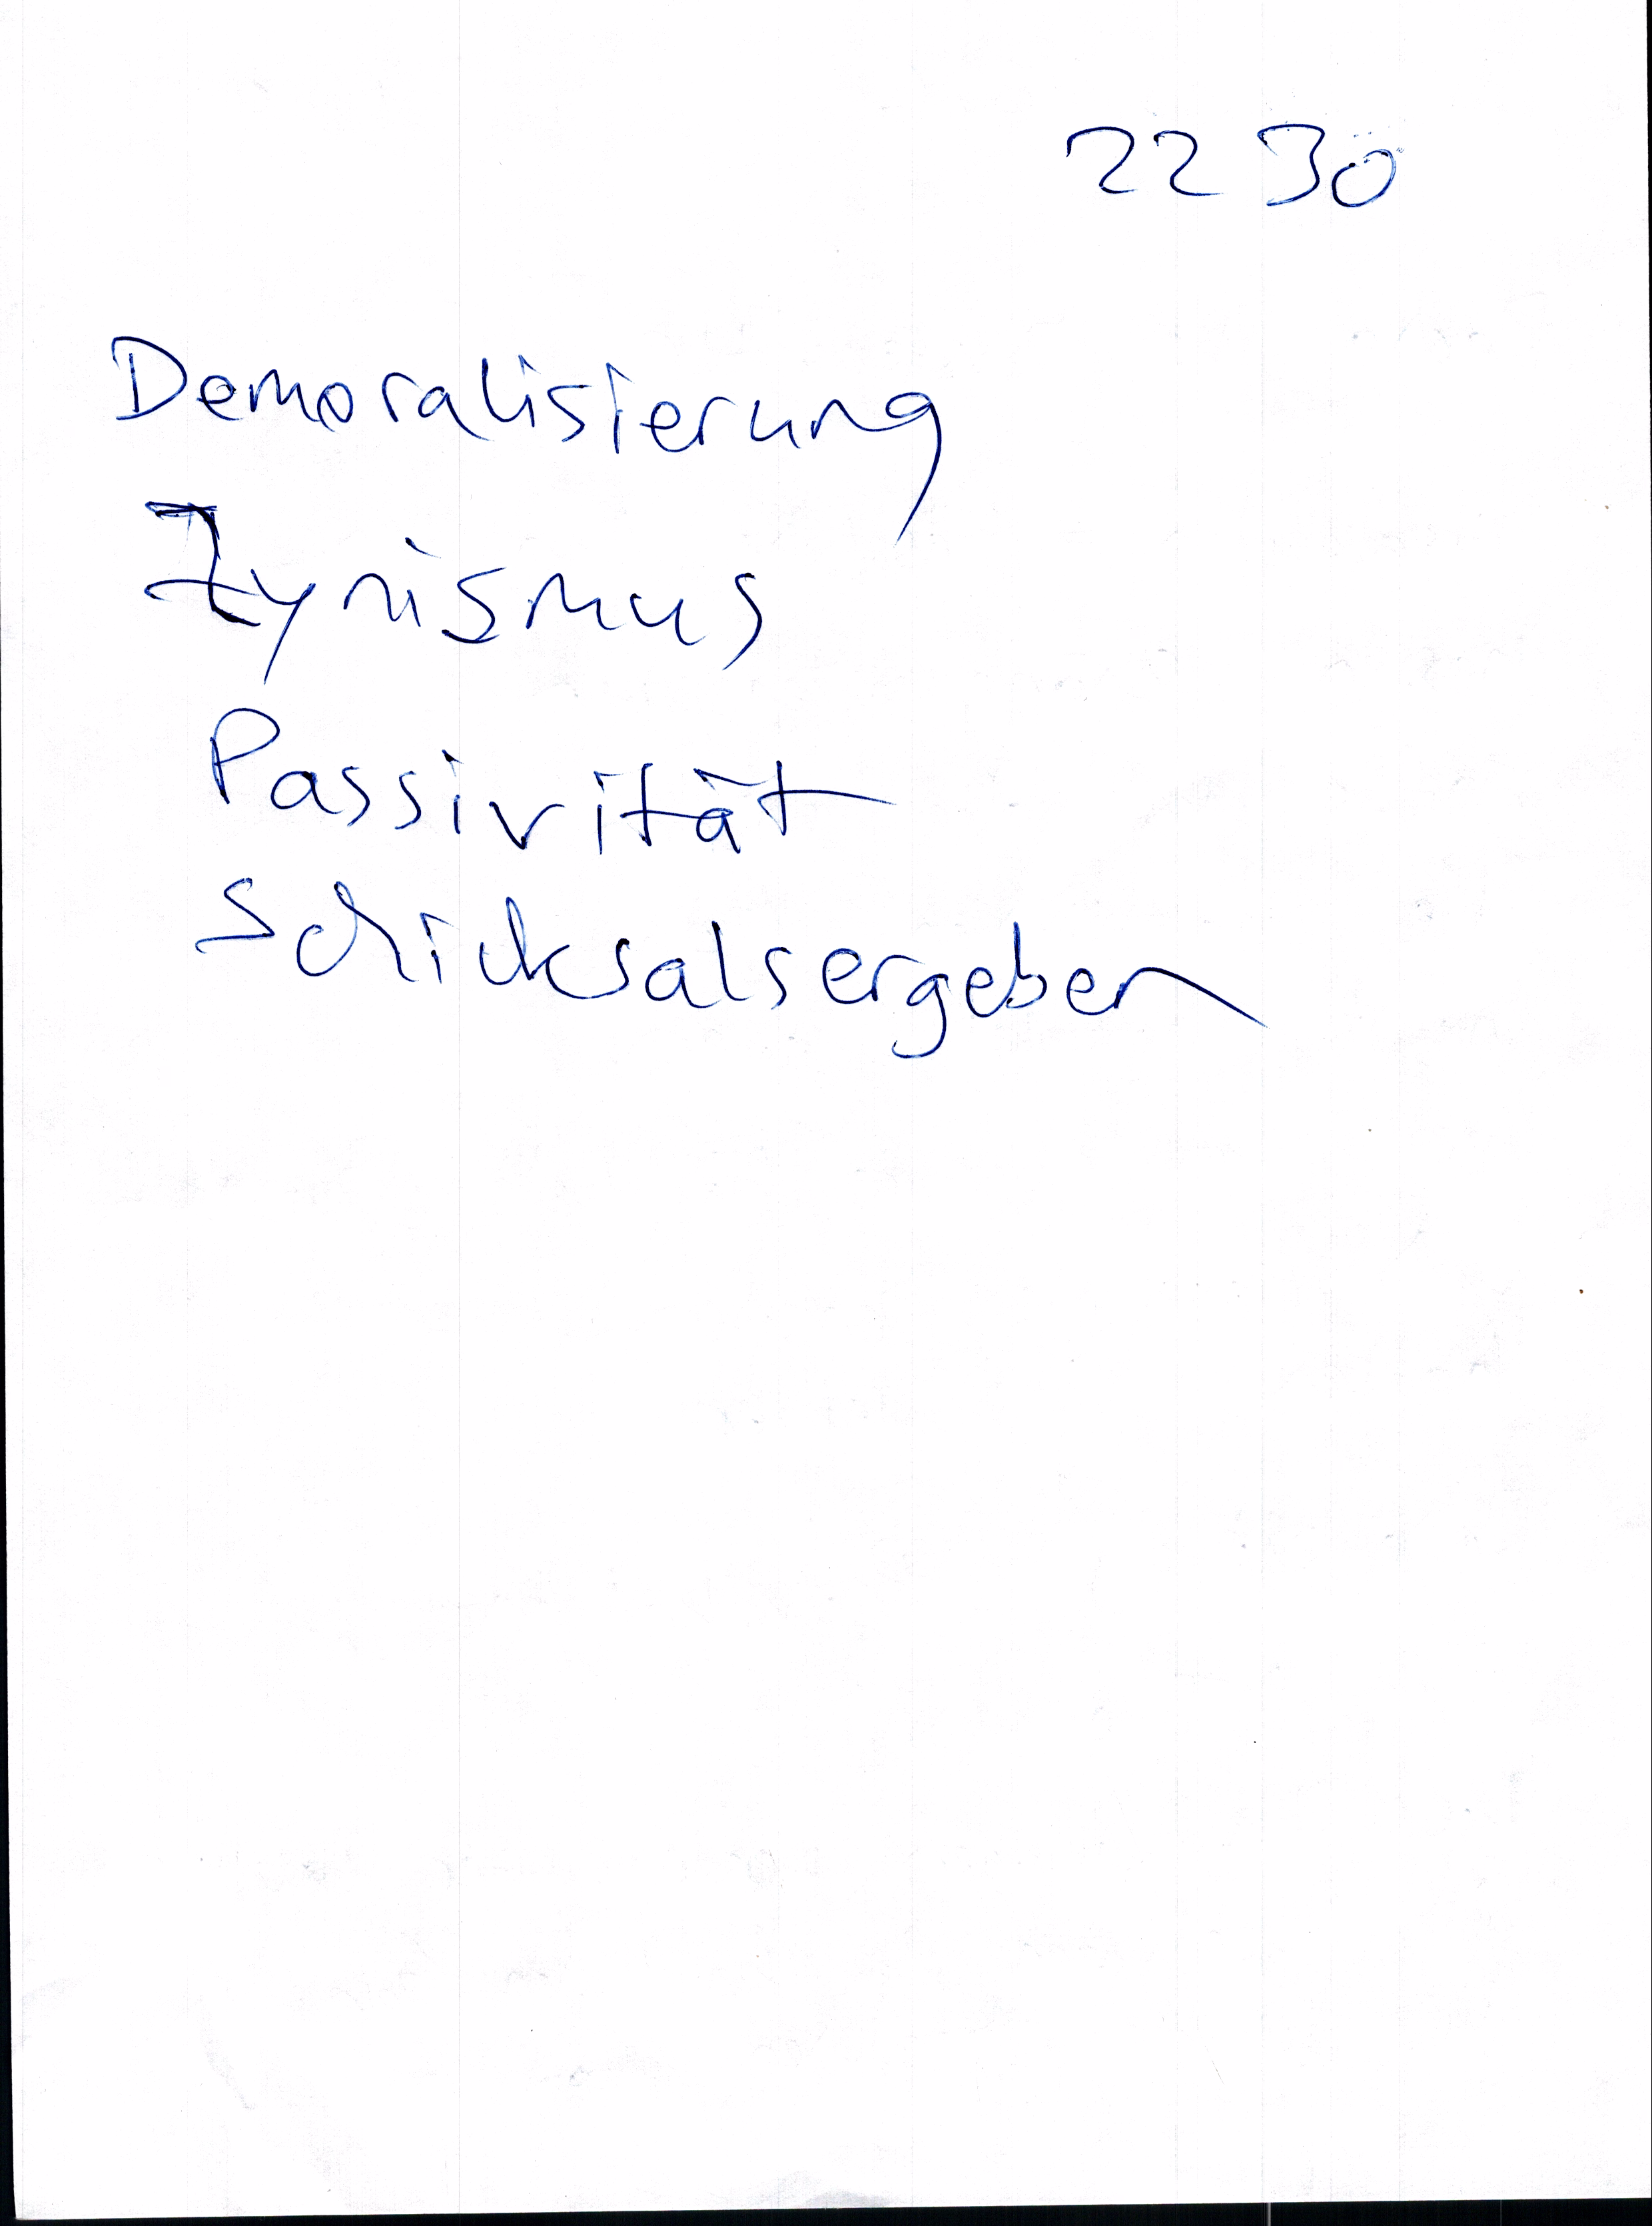 22 30
Demoralisierung
Zynismus
Passivität
Schicksalsergeben